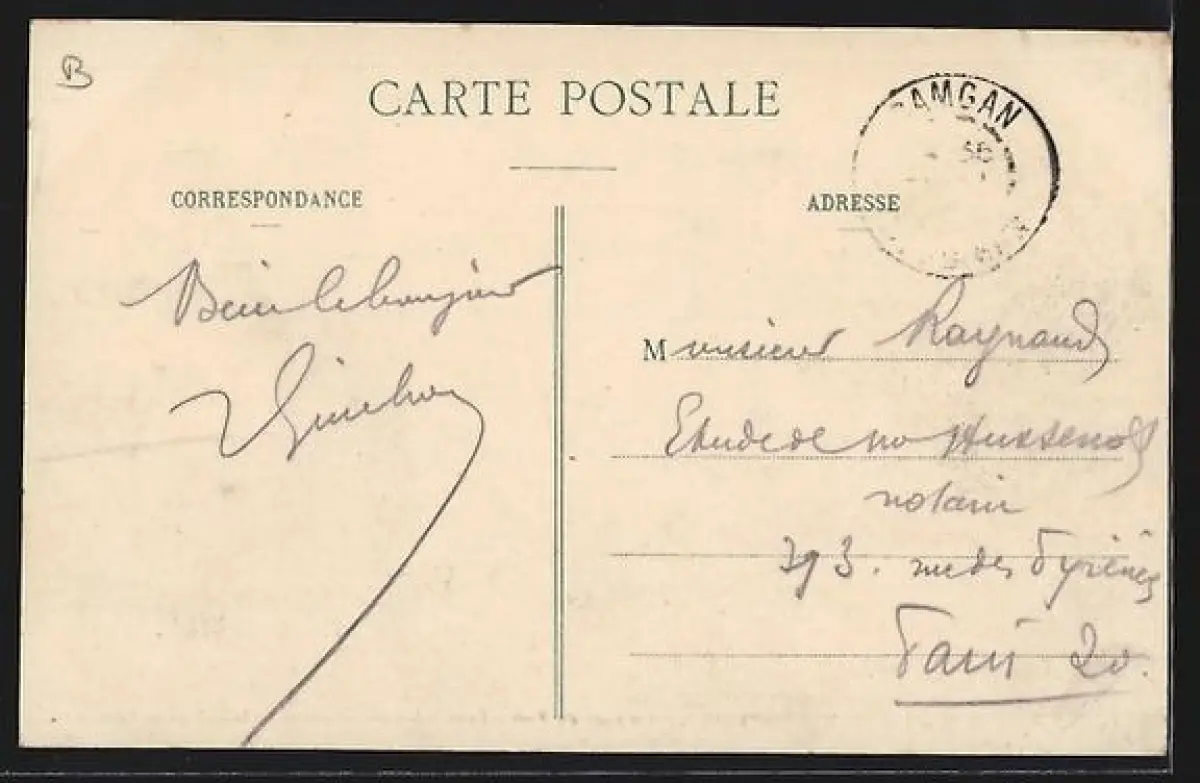 B
CARTE POSTALE
DAMGAN
CORRESPONDANCE
ADRESSE
Bien le bonjour
Monsieur Raynaud
Etude de
notaire
393. rue des Pyrénées
Paris 20